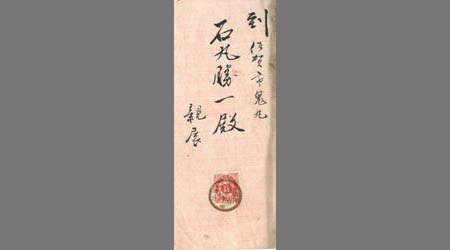 到 佐賀市鬼丸
石丸勝一殿
親展